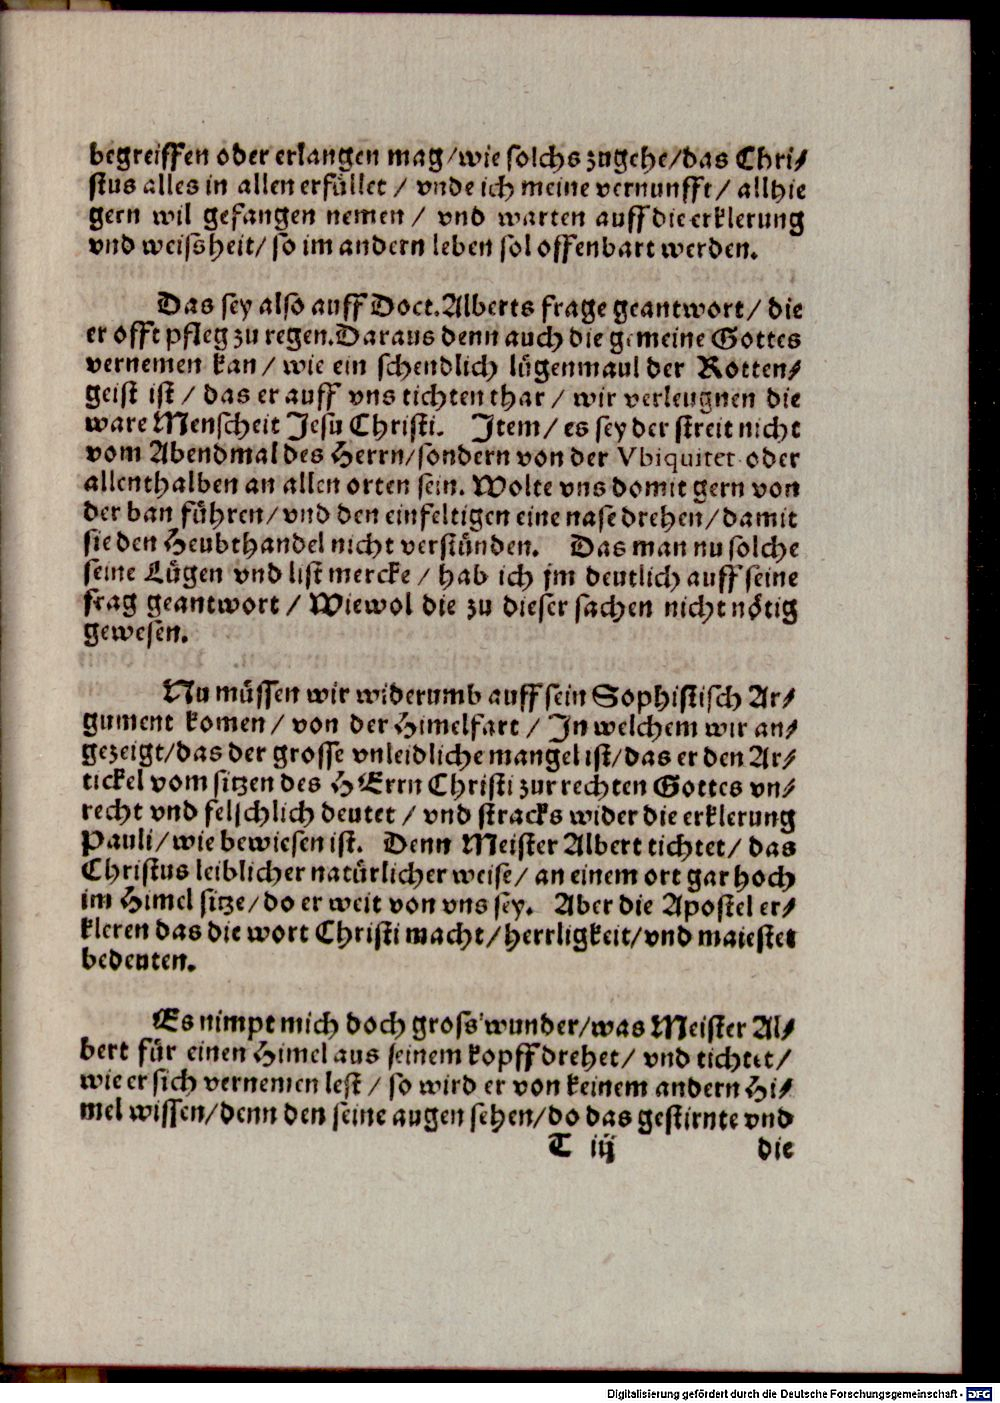 begreiffen oder erlangen mag/wie solchs zugehe/das Chri/
stus alles in allen erfüllet / vnde ich meine vernunfft / allhie
gern wil gefangen nemen / vnd warten auff die erklerung
vnd weisheit/ so im andern leben sol offenbart werden.
Das sey also auff Doct. Alberts frage geantwort/ die
er offt pfleg zu regen. Daraus denn auch die gemeine Gottes
vernemen kan / wie ein schendlich lügenmaul der Rotten/
geist ist / das er auff vns tichten thar / wir verleugnen die
ware Menscheit Jesu Christi. Item/ es sey der streit nicht
vom Abendmal des Herrn/sondern von der Vbiquitet oder
allenthalben an allen orten sein. Wolte vns domit gern von
der ban führen/vnd den einfeltigen eine nase drehen/damit
sie den Heubthandel nicht verstünden. Das man nu solche
seine Lügen vnd list mercke / hab ich jm deutlich auff seine
frag geantwort / Wiewol die zu dieser sachen nicht nötig
gewesen.
Nu müssen wir widerumb auff sein Sophistisch Ar/
gument komen / von der Himelfart / In welchem wir an/
gezeigt/das der grosse vnleidliche mangel ist/das er den Ar/
tickel vom sitzen des HErrn Christi zur rechten Gottes vn/
recht vnd felschlich deutet / vnd stracks wider die erklerung
Pauli/ wie bewiesen ist. Denn Meister Albert tichtet/ das
Christus leiblicher natürlicher weise/ an einem ort gar hoch
im Himel sitze/do er weit von vns sey. Aber die Apostel er/
kleren das die wort Christi macht/herrligkeit/vnd maiestet
bedeuten.
Es nimpt mich doch gross wunder/was Meister Al/
bert für einen Himel aus seinem kopff drehet/ vnd tichtet/
wie er sich vernemen lest / so wird er von keinem andern Hi/
mel wissen/denn den seine augen sehen/do das gestirnte vnd
T iij die
Digitalisierung gefördert durch die Deutsche Forschungsgemeinschaft - DFG